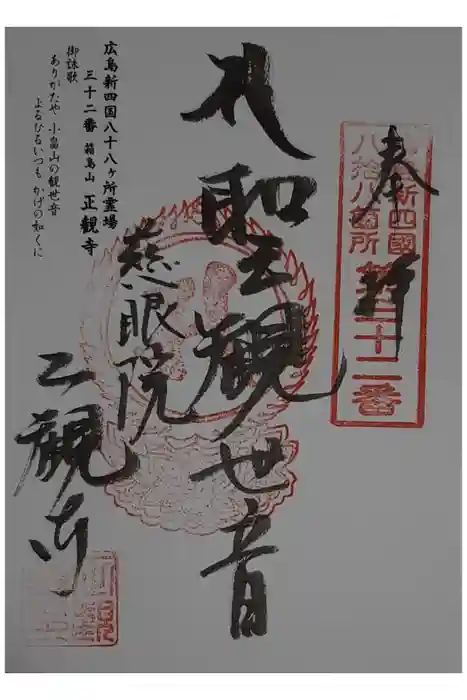 奉拝
廣島新四國
八拾八箇所
第三十二番
大聖観世音
慈眼院
正観寺
広島新四国八十八ヶ所霊場
三十二番 箱島山 正観寺
御詠歌
ありがたや 小畠山の観世音
よるひるいつも かげの如くに